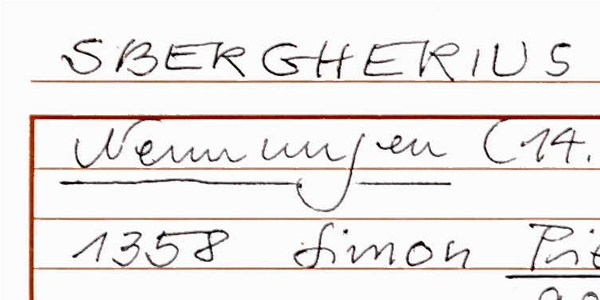 SBERGHERIUS
Nennungen (14.
1358 Simon